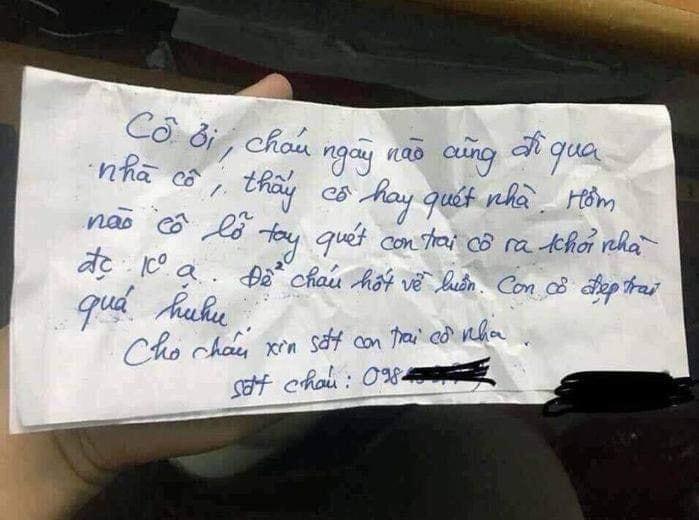 Cô ơi, cháu ngày nào cũng đi qua
nhà cô, thấy cô hay quét nhà. Hôm
nào cô lỡ tay quét con trai cô ra khỏi nhà
đc k° ạ. Để² cháu hốt về luôn. Con cô đẹp trai
quá huhu
Cho cháu xin sđt con trai cô nha.
sđt cháu: 098